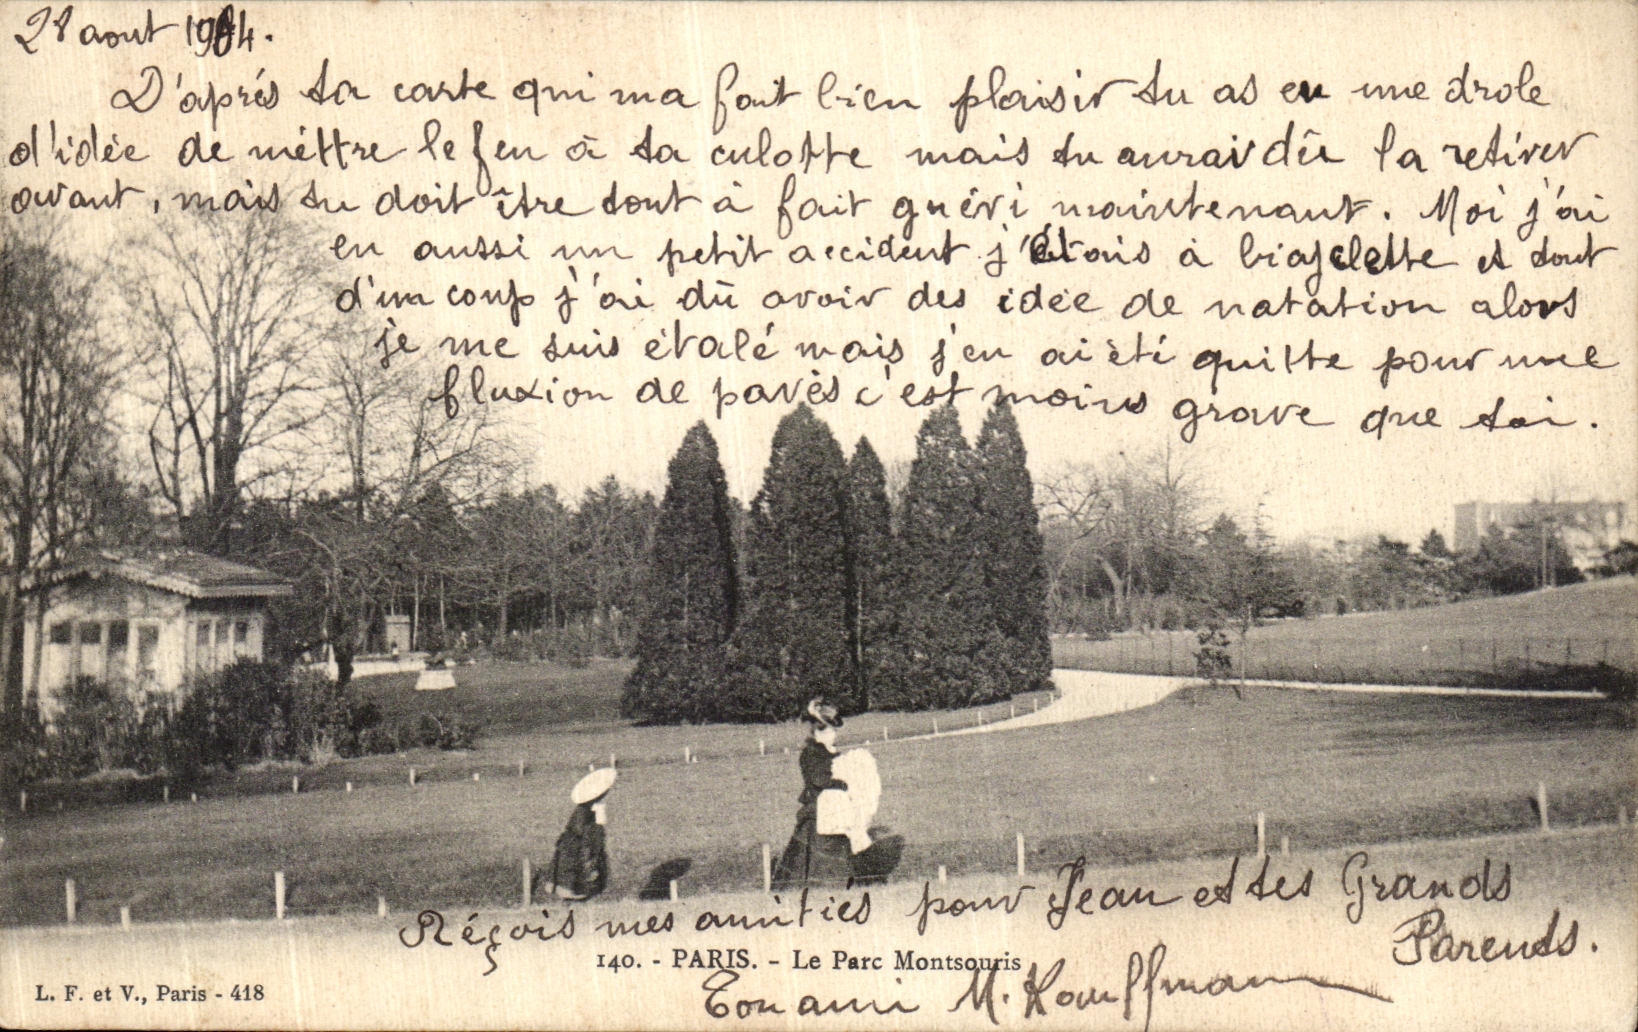 28 aout 1904.
D'aprés ta carte qui ma fait bien plaisir tu as eu une drole
d'idée de méttre le feu à ta culotte mais tu aurai dû la retirer
avant, mais tu doit être tout à fait guéri maintenant. Moi j'ai
eu aussi un petit accident j'étais à biciclette et tout
d'un coup j'ai dû avoir des idée de natation alors
je me suis étalé mais j'en ai été quitte pour une
fluxion de pavés c'est moins grave que toi.
Réçois mes amitiés pour Jean et tes Grands
Parents.
140. - PARIS. - Le Parc Montsouris
L. F. et V., Paris - 418
Ton ami M. Kauffmann